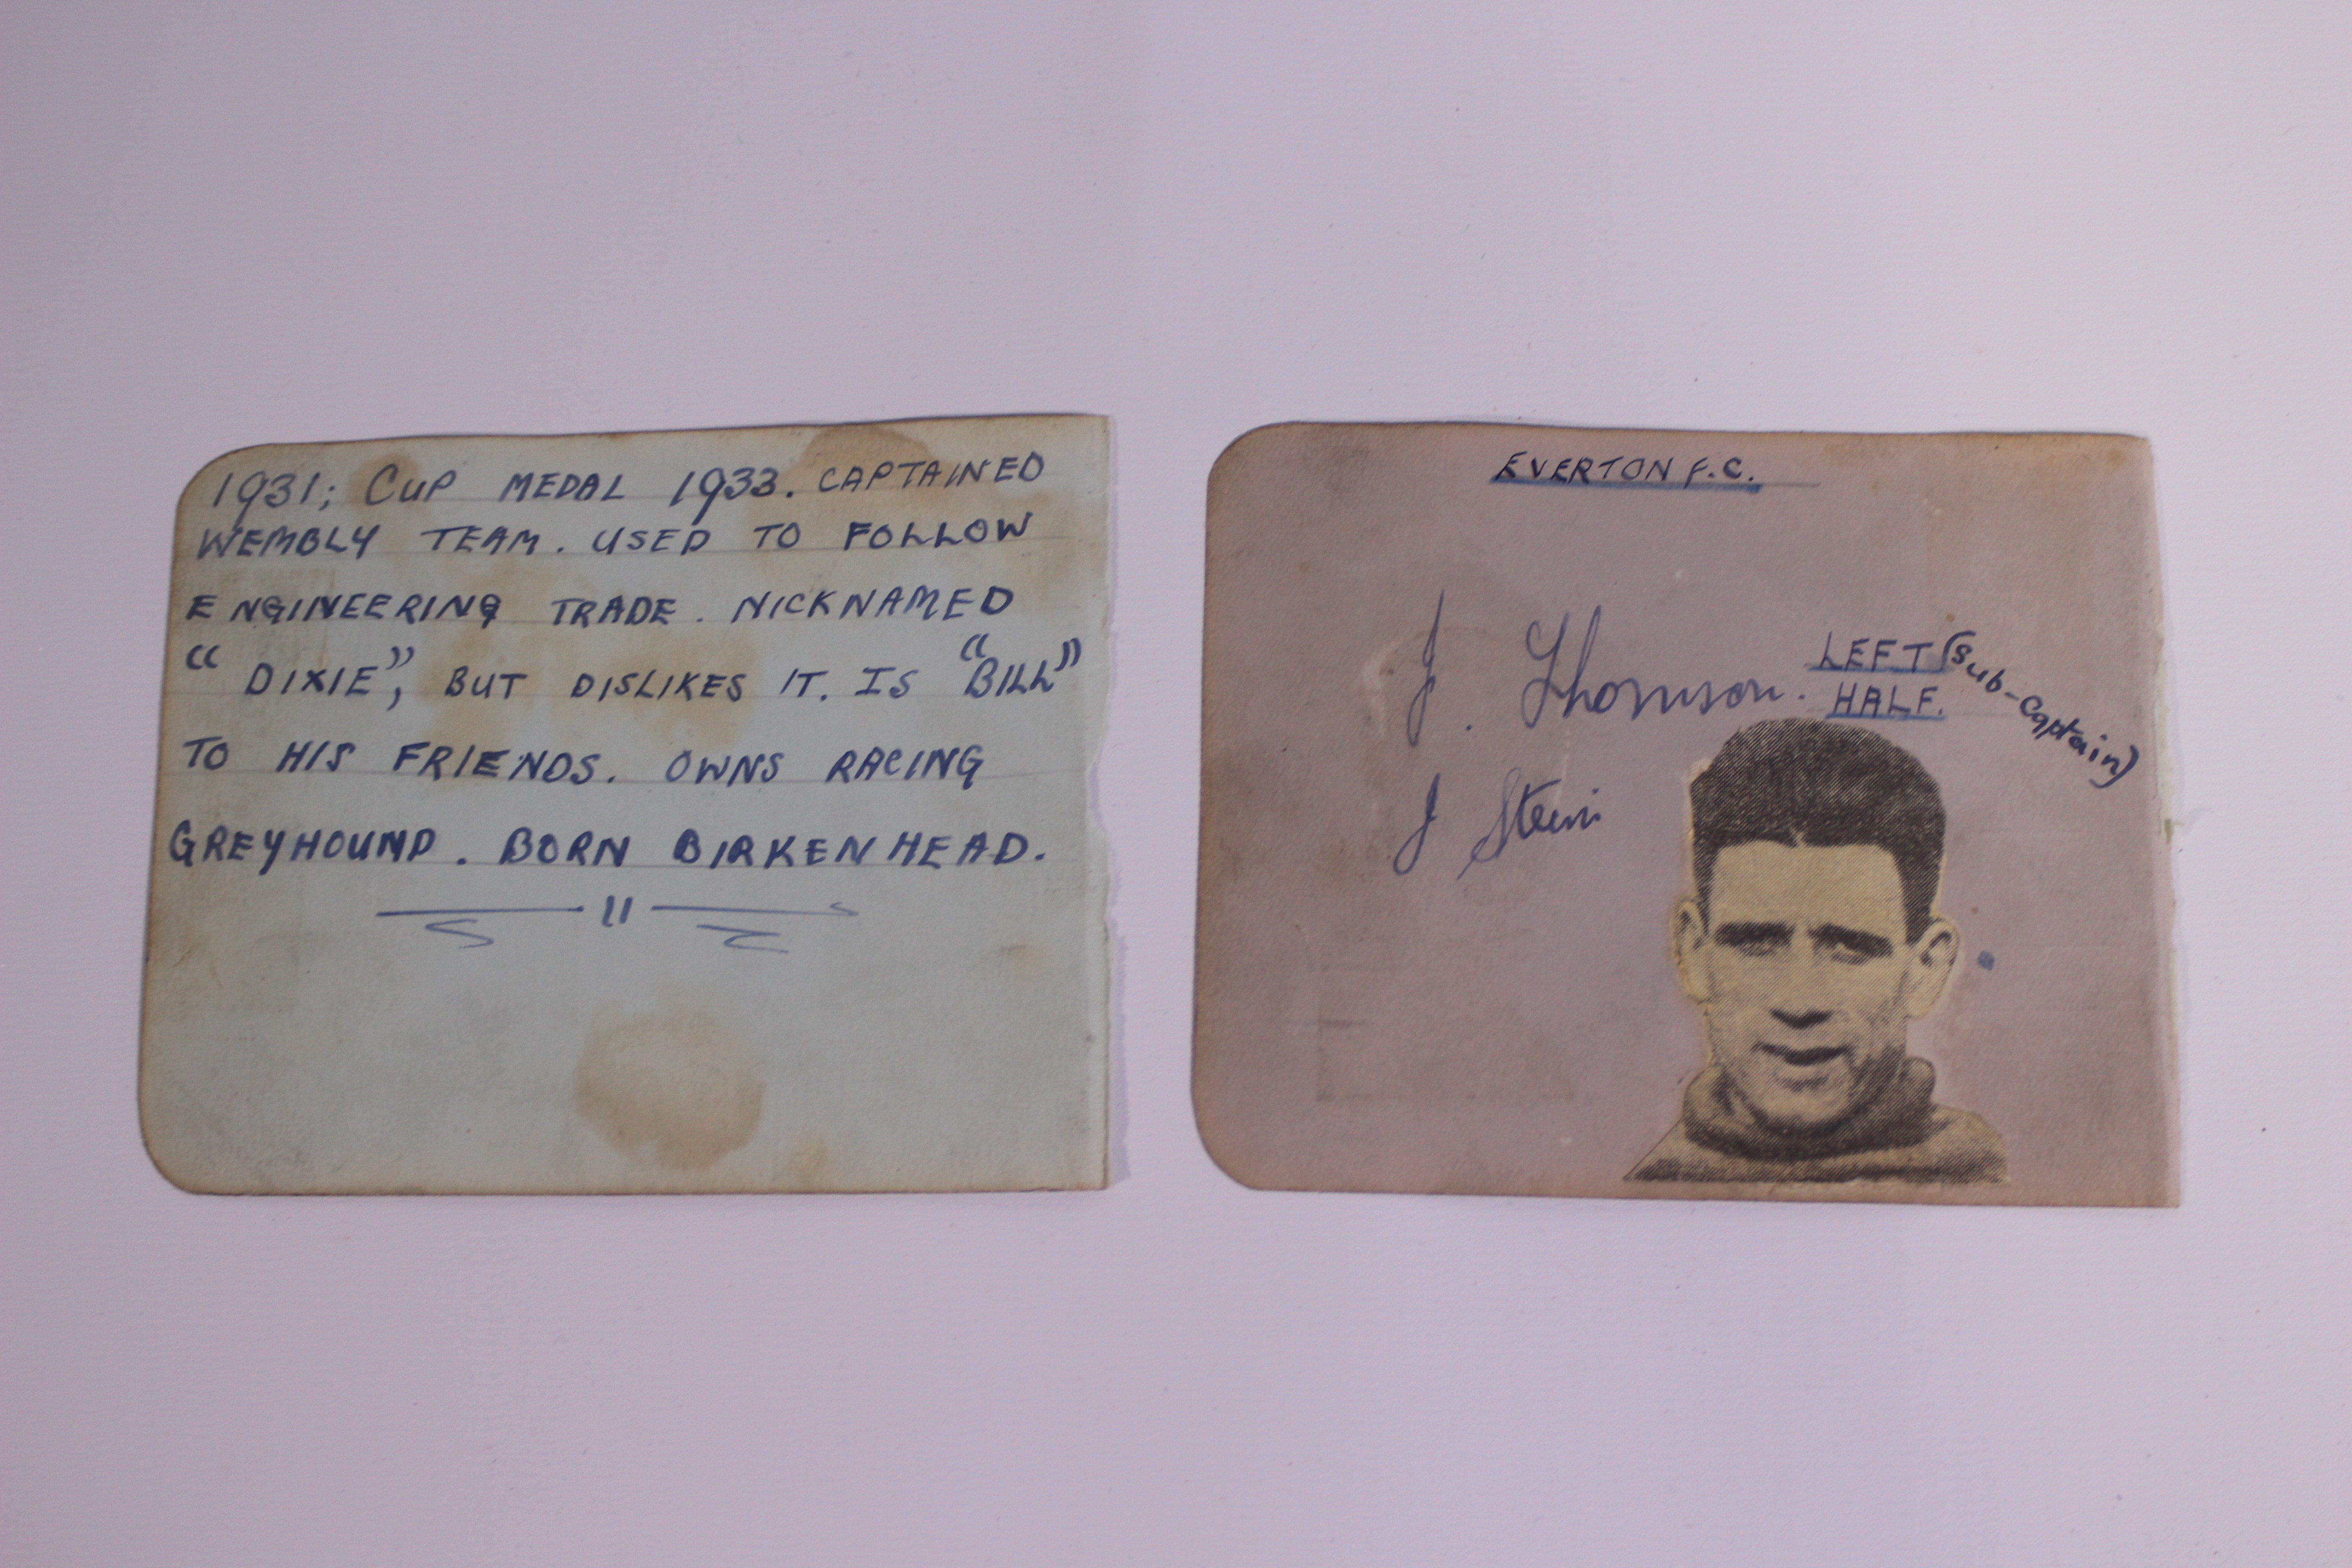 1931; CUP MEDAL 1933. CAPTAINED
WEMBLY TEAM. USED TO FOLLOW
ENGINEERING TRADE. NICKNAMED
“DIXIE”, BUT DISLIKES IT. IS “BILL”
TO HIS FRIENDS. OWNS RACING
GREYHOUND. BORN BIRKENHEAD.
EVERTON F.C.
J. Thomson. LEFT (Sub-Captain)
HALF.
J Stein